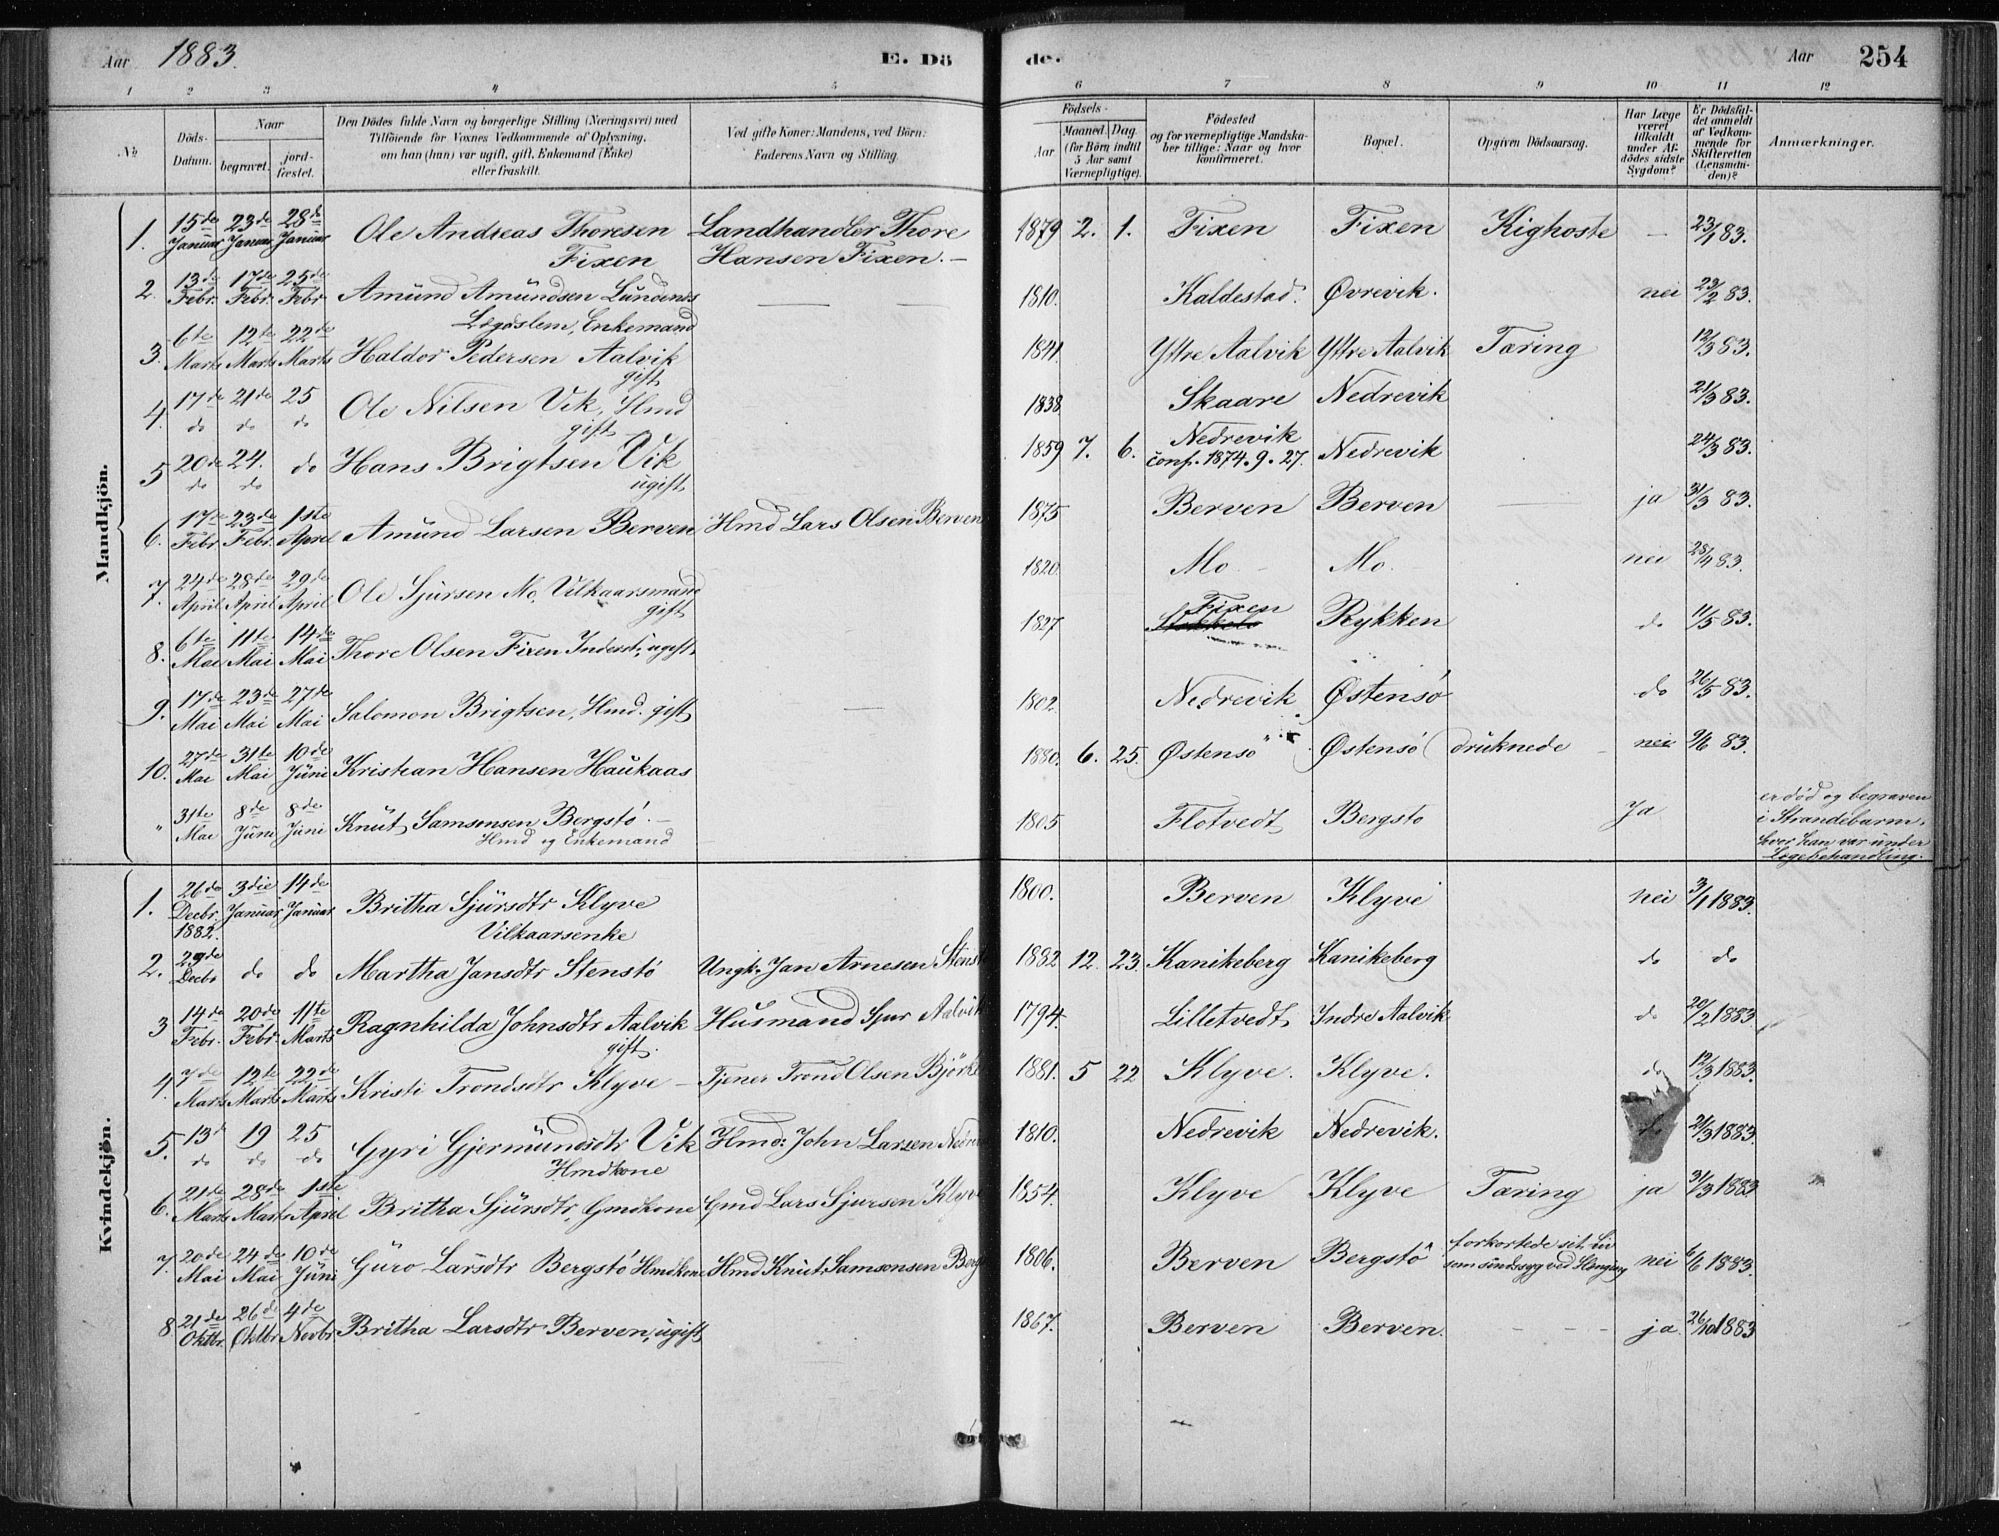 Aar 1883. E. Dö de. Aar 254
1 2 3 4 5 6 7 8 9 10 11 12
No
Döds-Datum.
Naar
begravet.
jord-fæstet.
Den Dödes fulde Navn og borgerlige Stilling (Næringsvei) med
Tilföiende for Voxnes Vedkommende af Oplysning,
om han (hun) var ugift, gift, Enkemand (Enke)
eller fraskilt.
Ved gifte Koner: Mandens, ved Börn:
Faderens Navn og Stilling.
Födsels-
Aar
Maaned. Dag.
(for Börn indtil
5 Aar samt
Værnepligtige).
Födested
og for værnepligtige Mandska-
ber tillige: Naar og hvor
konfirmeret.
Bopæl.
Opgiven Dödsaarsag.
Har Læge
været
tilkaldt
under Af-
dödes sidste
Sygdom?
Er Dödsfal-
det anmeldt
af Vedkom-
mende for
Skifteretten
(Lensman-
den)?
Anmærkninger.
Mandkjön.
1. 15de Januar 23de Januar 28de Januar Ole Andreas Thoresen Fixen Landhandler Thore Hansen Fixen. – 1879 2. 1. Fixen Fixen Kighoste – 23/1 83.
2. 13de Febr. 17de Febr. 25de Febr. Amünd Amündsen Lündenes Løgøslem, Enkemand 1810. Kaldestad. Øvrevik. nei 23/2 83.
3. 6te Marts 12te Marts 22de Marts Haldor Pedersen Aalvik gift 1841. Yttre Aalvik Yttre Aalvik Tæring 12/3 83.
4. 17de do 21de do 25 do Ole Nilsen Vik, Hmd gift 1838 Skaare Nedrevik 21/3 83.
5 20de do 24. do do Hans Brigtsen Vik ugift 1859 7. 6. Nedrevik conf. 1874. 9. 27. Nedrevik 24/3 83.
6. 17de Febr 23de Febr. 1ste April Amünd Larsen Berven Hmd Lars Olsen Berven 1875 Berven Berven ja 31/3 83.
7. 24de April 28de April 29de April Ole Sjürsen Mo, Vilkaarsmand gift 1820. Mo. Mo. nei 28/4 83.
8. 6te Mai 11te Mai 14de Mai Thore Olsen Fixen Inderst, ugift. 1827 Fixen Rykken do 11/5 83.
9. 17de Mai 23de Mai 27de Mai Salomon Brigtsen, Hmd. gift 1802. Nedrevik Østensö do 26/5 83.
10. 27de Mai 31te Mai 10de Jüni Kristian Hansen Haükaas 1880. 6. 25. Østensö Østensö druknede nei 2/6 83.
" 31te Mai 8de Jüni 8de Jüni Knüt Samsonsen Bergstö. – Hmd og Enkemand 1805 Flotvedt Bergstö Ja er död og begraven
i Strandebarm,
hvor han var ünder
Lægebehandling.
Kvindekjön.
1. 26de Decbr. 1882. 3die Januar 14de Januar Britha Sjürsdtr Klyve Vilkaarsenke 1800. Berven Klyve nei 3/1 1883.
2. 29de Decbr do do Martha Jansdtr Stenstö Ungk: Jan Arnesen Stenstö 1882 12. 23. Kanikeberg Kanikeberg do do
3 14de Febr. 20de Febr. 11te Marts Ragnhilda Johnsdtr Aalvik gift. Husmand Spur Aalvik 1794. Lilletvedt Indre Aalvik do 20/2 1883
4. 7de Marts 12te Marts 22de Marts Kristi Trondsdtr Klyve – Tjener Trond Olsen Björke 1881. 5 22 Klyve. Klyve. do 12/3 1883.
5. 13de do 19 do 25 do Gyri Gjermündsdtr Vik Hmdkone Hmd: John Larsen Nedrev 1810. Nedrevik Nedrevik. do 21/3 1883.
6. 21de Marts 28de Marts 1ste April Britha Sjürsdtr, Gmdkone Gmd Lars Sjursen Klyve 1854. Klyve Klyve Tæring ja 31/3 1883
7. 20de Mai 24de Mai 10de Jüni Güro Larsdtr Bergstö Hmdkone Hmd Knüt Samsonsen Bergs 1806. Berven Bergstö forkortede sit Liv
som sindssyg ved Hængning nei 6/6 1883.
8 21de Oktbr. 26de Oktbr 4de Novbr Britha Larsdtr Berven, ugift 1867. Berven Berven. – – – ja 26/10 1883